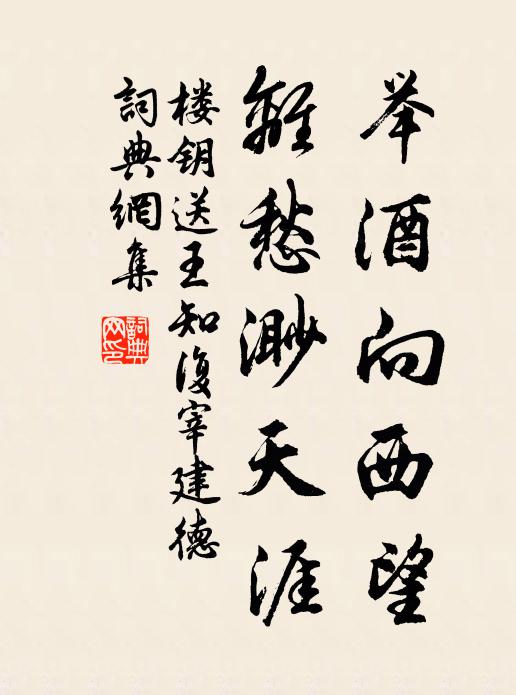 举酒向西望
離愁渺天涯
楼钥送王知復宰建德
詞典網集
詞典网印